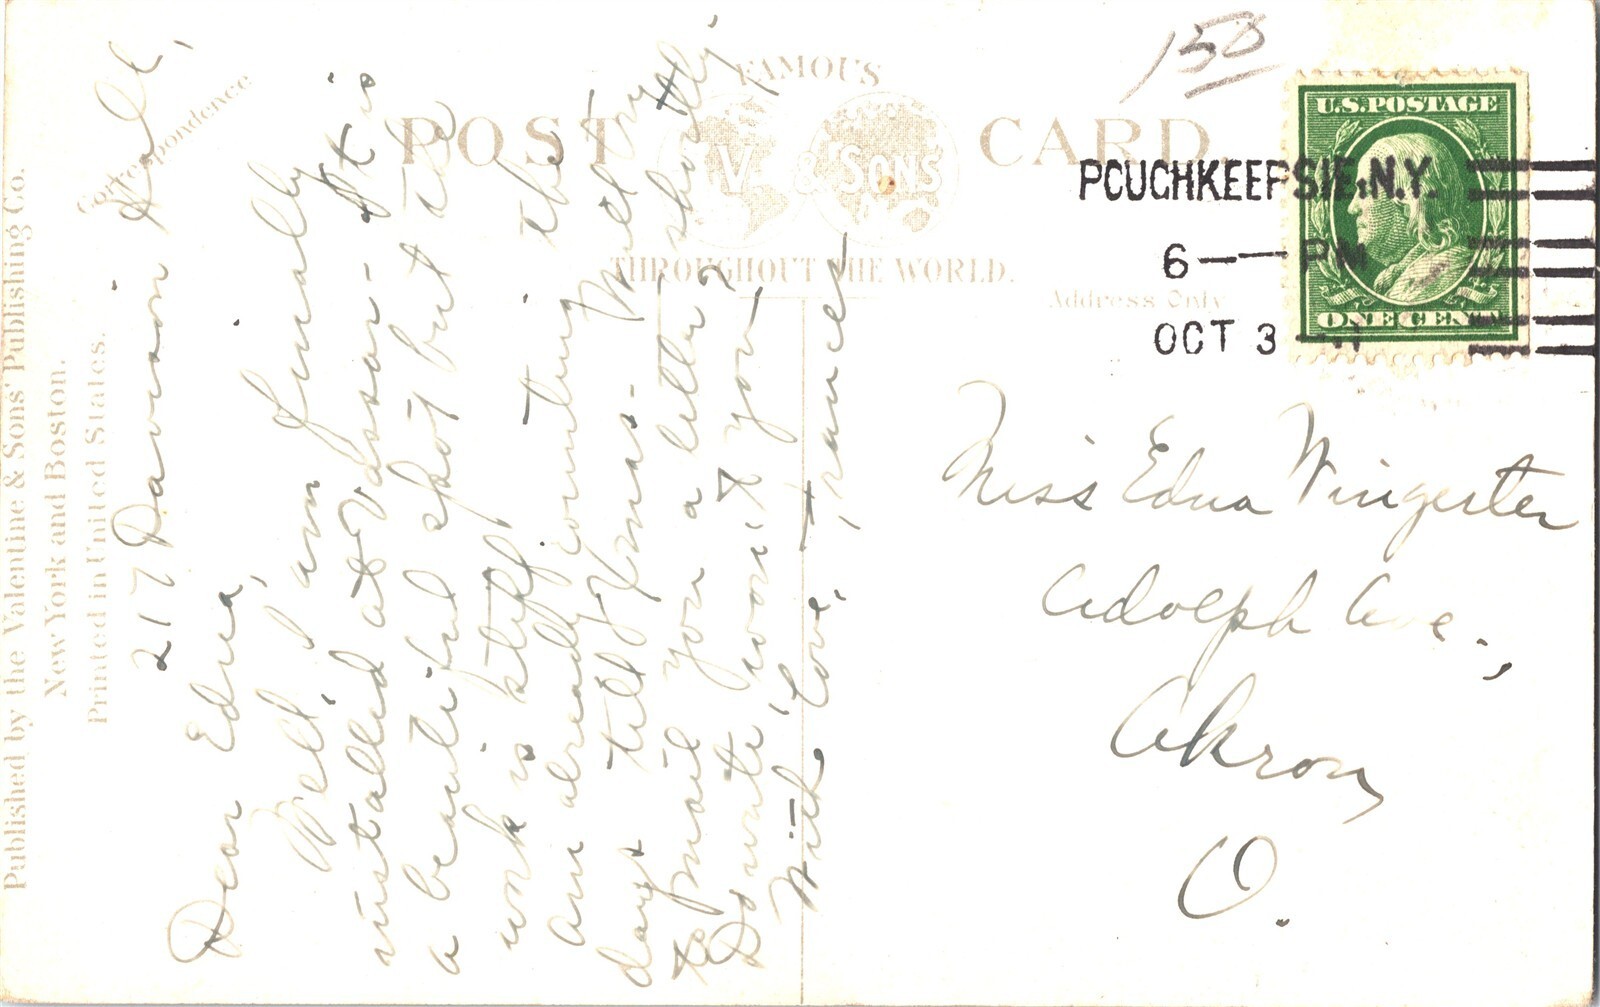 Published by the Valentine & Sons' Publishing Co.
New York and Boston.
Printed in United States.
Correspondence
FAMOUS
POST CARD.
V. & SONS
THROUGHOUT THE WORLD.
Address Only
158
U.S. POSTAGE
ONE CENT
POUGHKEEPSIE, N.Y.
6 — PM
OCT 3
217 Davison Hall,
Dear Edna,
Well, I am finally
installed at Vassar - It is
a beautiful spot but the
work is stiff, I
am already counting the
days till Xmas. Will try
to mail you a letter shortly.
Do write, won't you?
With love,
Frances
Miss Edna Wingerter
Adolph Ave.,
Akron,
O.